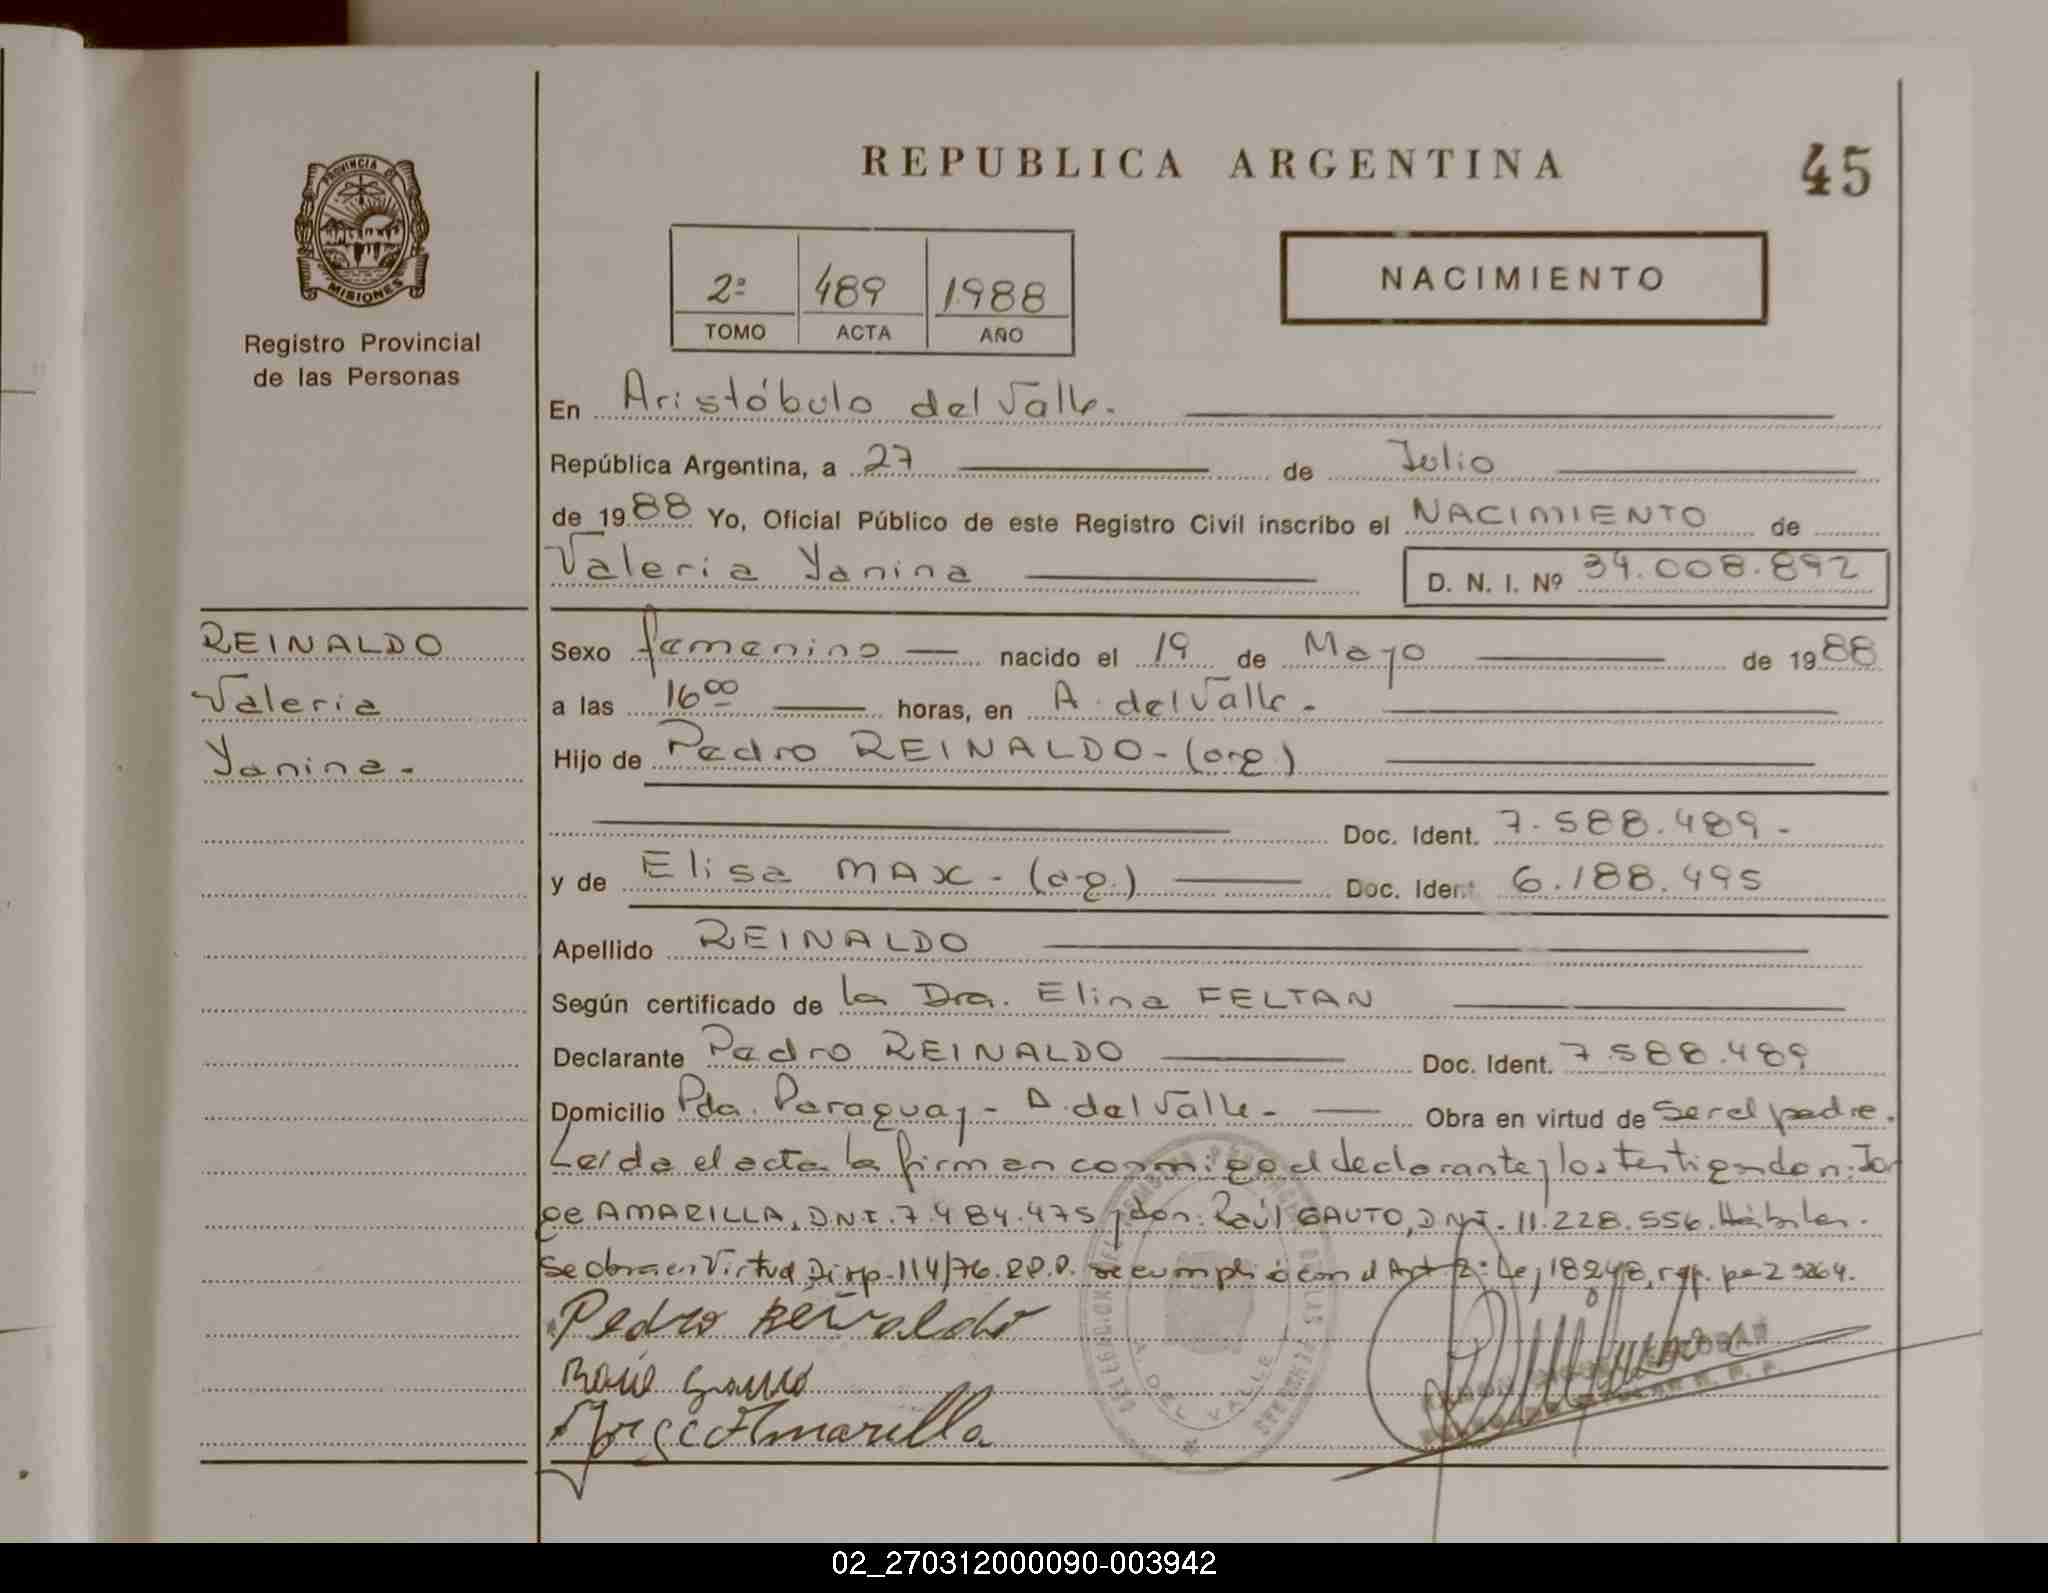 REPUBLICA ARGENTINA
45
PROVINCIA DE
MISIONES
Registro Provincial
de las Personas
2º 489 1988
TOMO ACTA AÑO
NACIMIENTO
En Aristóbulo del Valle.
República Argentina, a 27 de Julio
de 1988 Yo, Oficial Público de este Registro Civil inscribo el NACIMIENTO de
Valeria Yanina D. N. I. Nº 34.008.892
REINALDO
Valeria
Yanina.-
Sexo femenino nacido el 19 de Mayo de 1988
a las 16 00 horas, en A. del Valle.-
Hijo de Pedro REINALDO-(arg.)
Doc. Ident. 7.588.489.-
y de Elisa MAX.-(arg.) Doc. Ident. 6.188.495
Apellido REINALDO
Según certificado de la Dra. Elina FELTAN
Declarante Pedro REINALDO Doc. Ident. 7.588.489
Domicilio Pda. Paraguay- A. del Valle- Obra en virtud de Ser el padre.
Leída el acta la firman conmigo el declarante y los testigos don: Jor
ge AMARILLA, D.N.I. 7.484.475 y don: Raúl GAUTO, D.N.I. 11.228.556. Hábiles.
Se obra en Virtud Disp. 114/76. R.P.P. se cumplió con el Art. 2º Ley 18248,
Pedro Reinaldo
Raúl Gauto
Jorge Amarilla
A. DEL VALLE
02_270312000090-003942